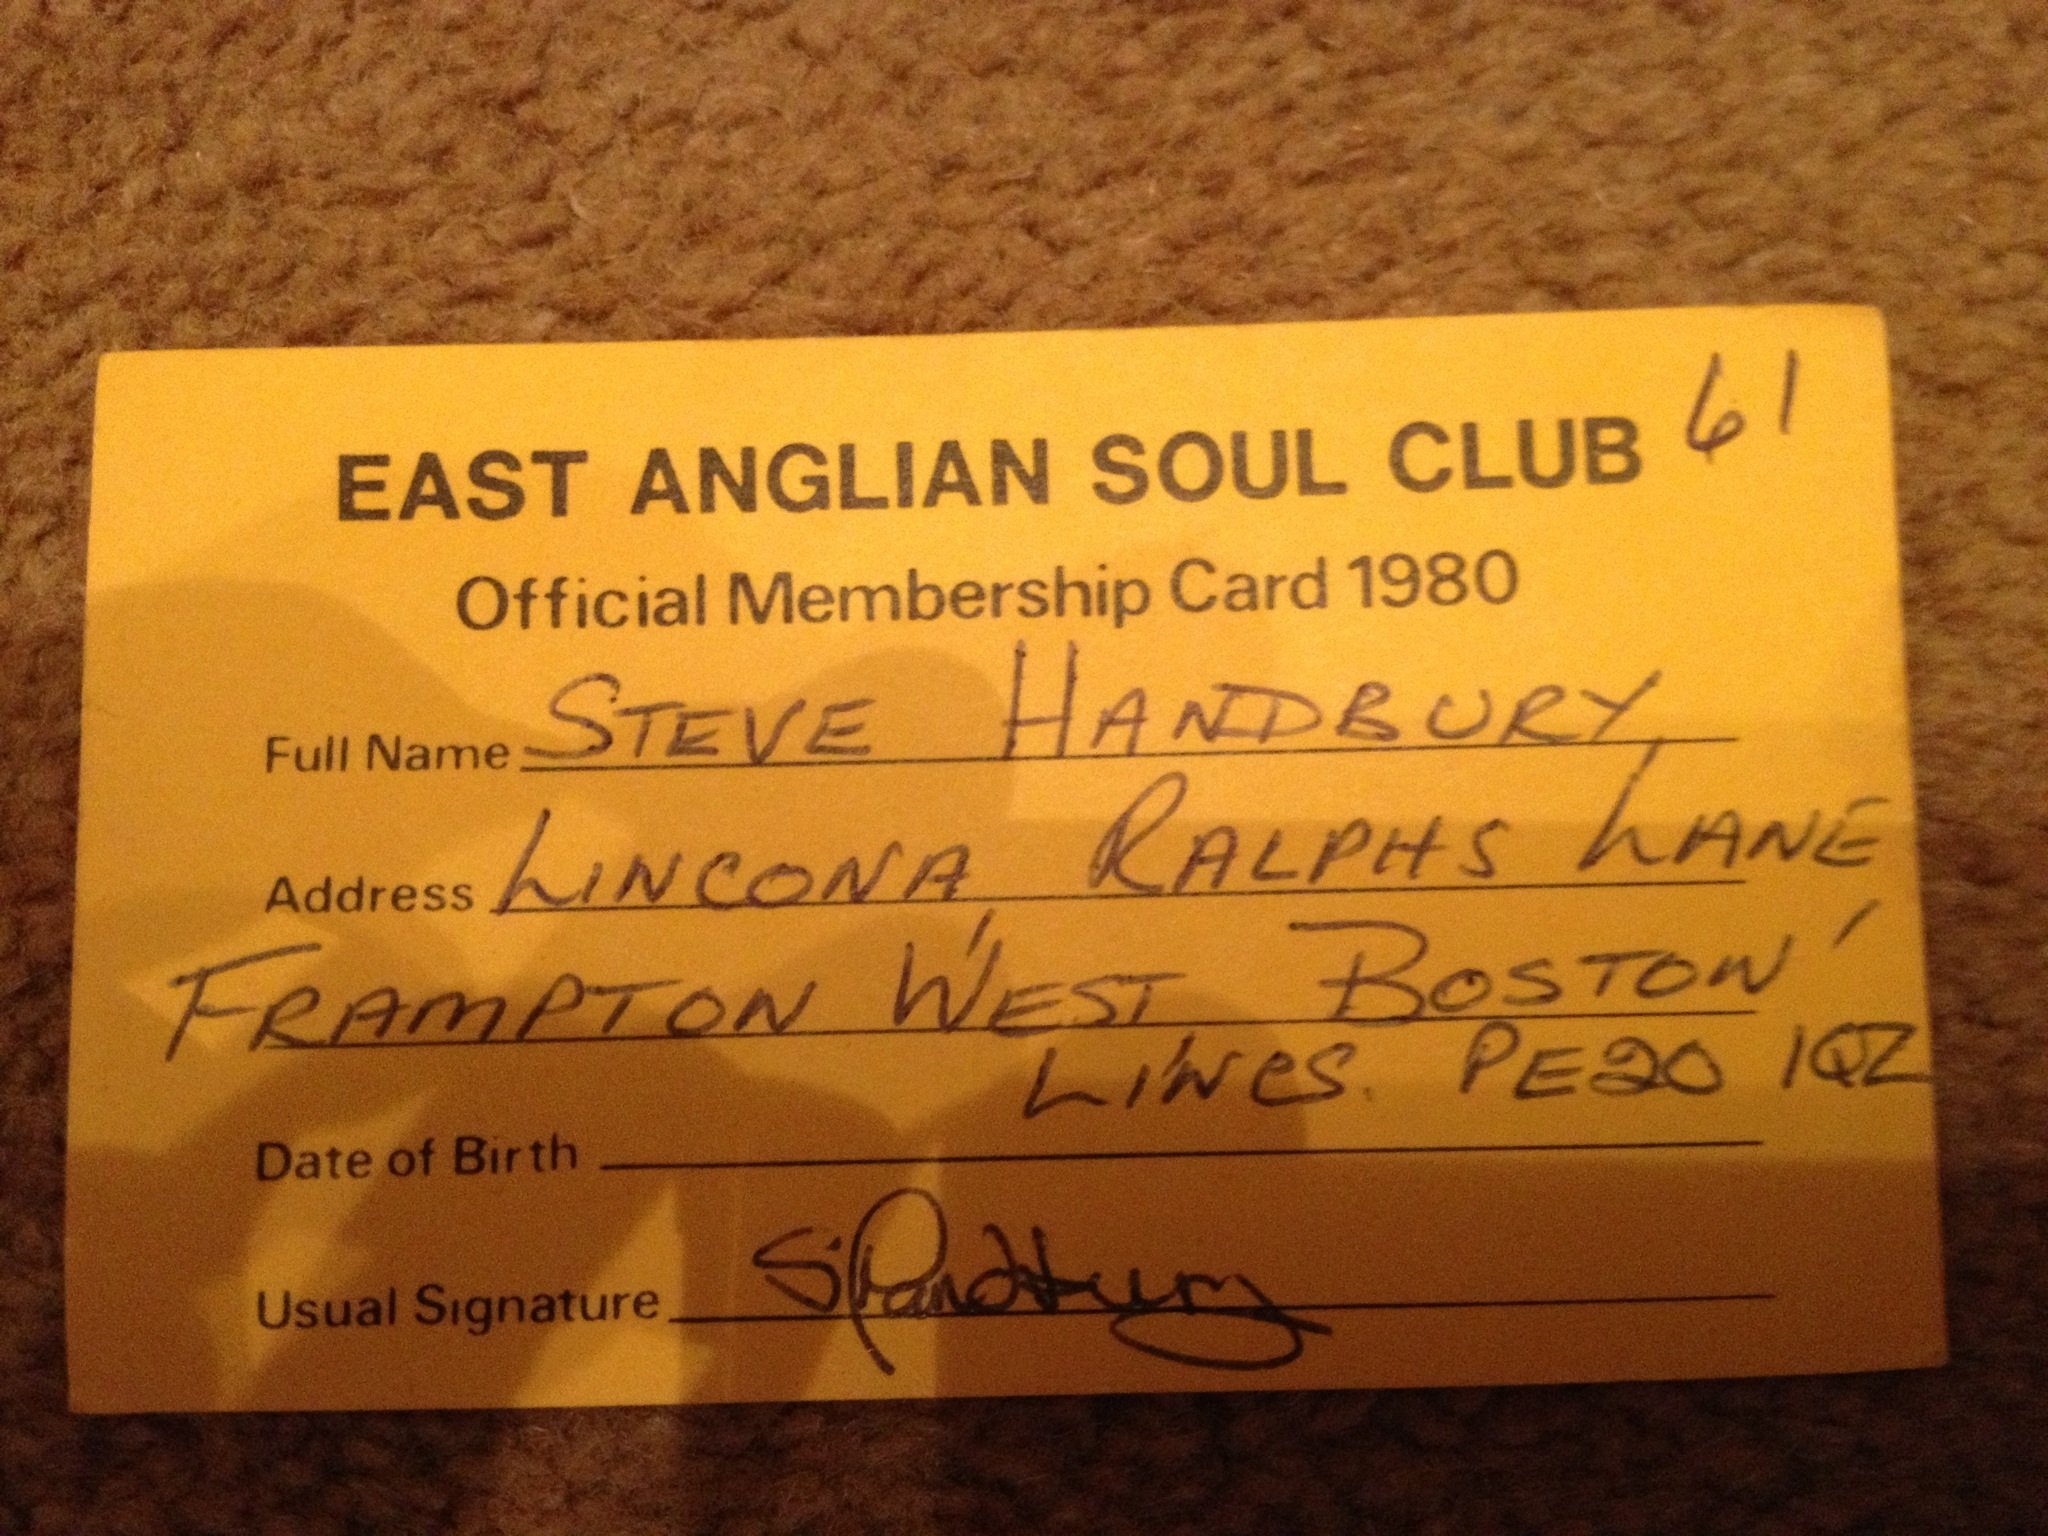 61
EAST ANGLIAN SOUL CLUB
Official Membership Card 1980
Full Name STEVE HANDBURY
Address LINCONA RALPHS LANE
FRAMPTON WEST BOSTON
LINCS. PE20 1QZ
Date of Birth
Usual Signature SHandbury